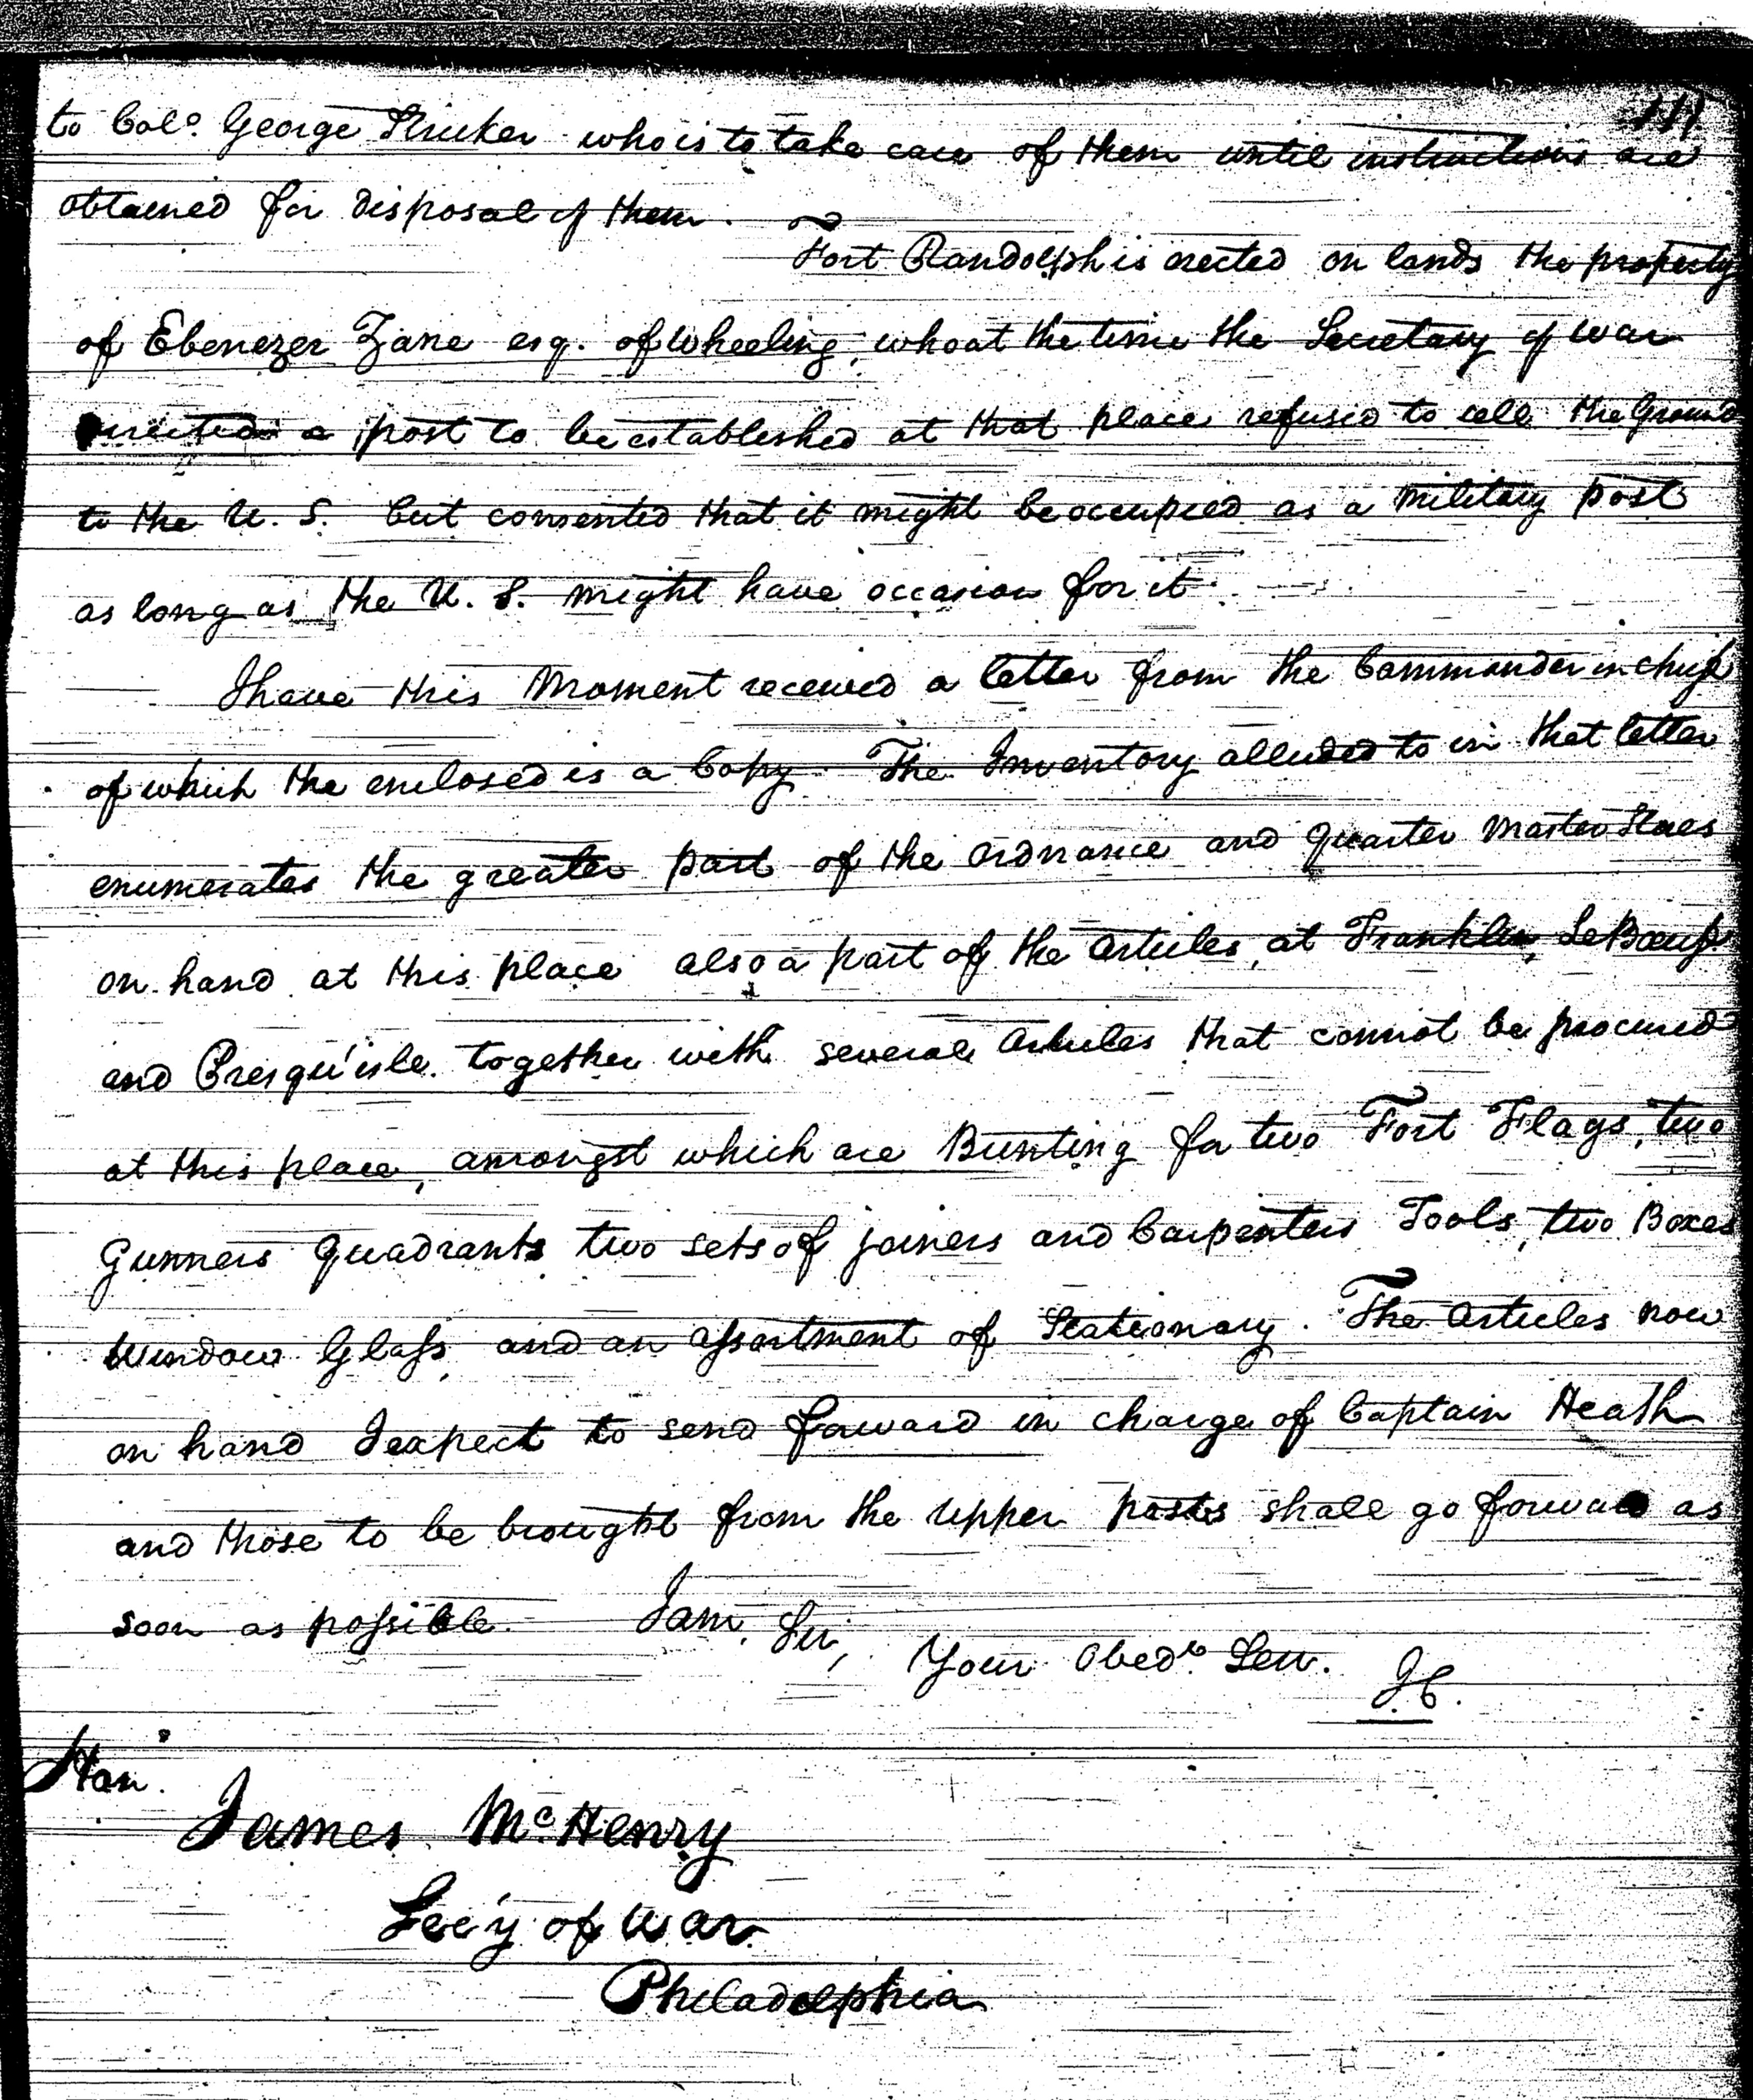 to Colo. George Stricker who is to take care of them until instructions are
obtained for disposal of them.
Fort Randolph is erected on lands the property
of Ebenezer Zane esq. of Wheeling, who at the time the Secretary of War
directed a post to be established at that place refused to sell the Ground
to the U. S. but consented that it might be occupied as a military post
as long as the U. S. might have occasion for it.
I have this Moment received a letter from the Commander in chief
of which the enclosed is a Copy. The Inventory alluded to in that letter
enumerates the greater part of the Ordnance and Quarter Master Stores
on hand at this place also a part of the Articles, at Franklin, LeBoeuf
and Presqu'isle. together with several Articles that cannot be procured
at this place, amongst which are Bunting for two Fort Flags, two
Gunners Quadrants two sets of joiners and Carpenters Tools, two Boxes
Window Glass, and an assortment of Stationary. The Articles now
on hand I expect to send forward in charge of Captain Heath
and those to be brought from the upper posts shall go forward as
soon as possible. I am, Sir,
Your Obedt. Serv. I C.
Hon.
James McHenry
Sec'y of War
Philadelphia